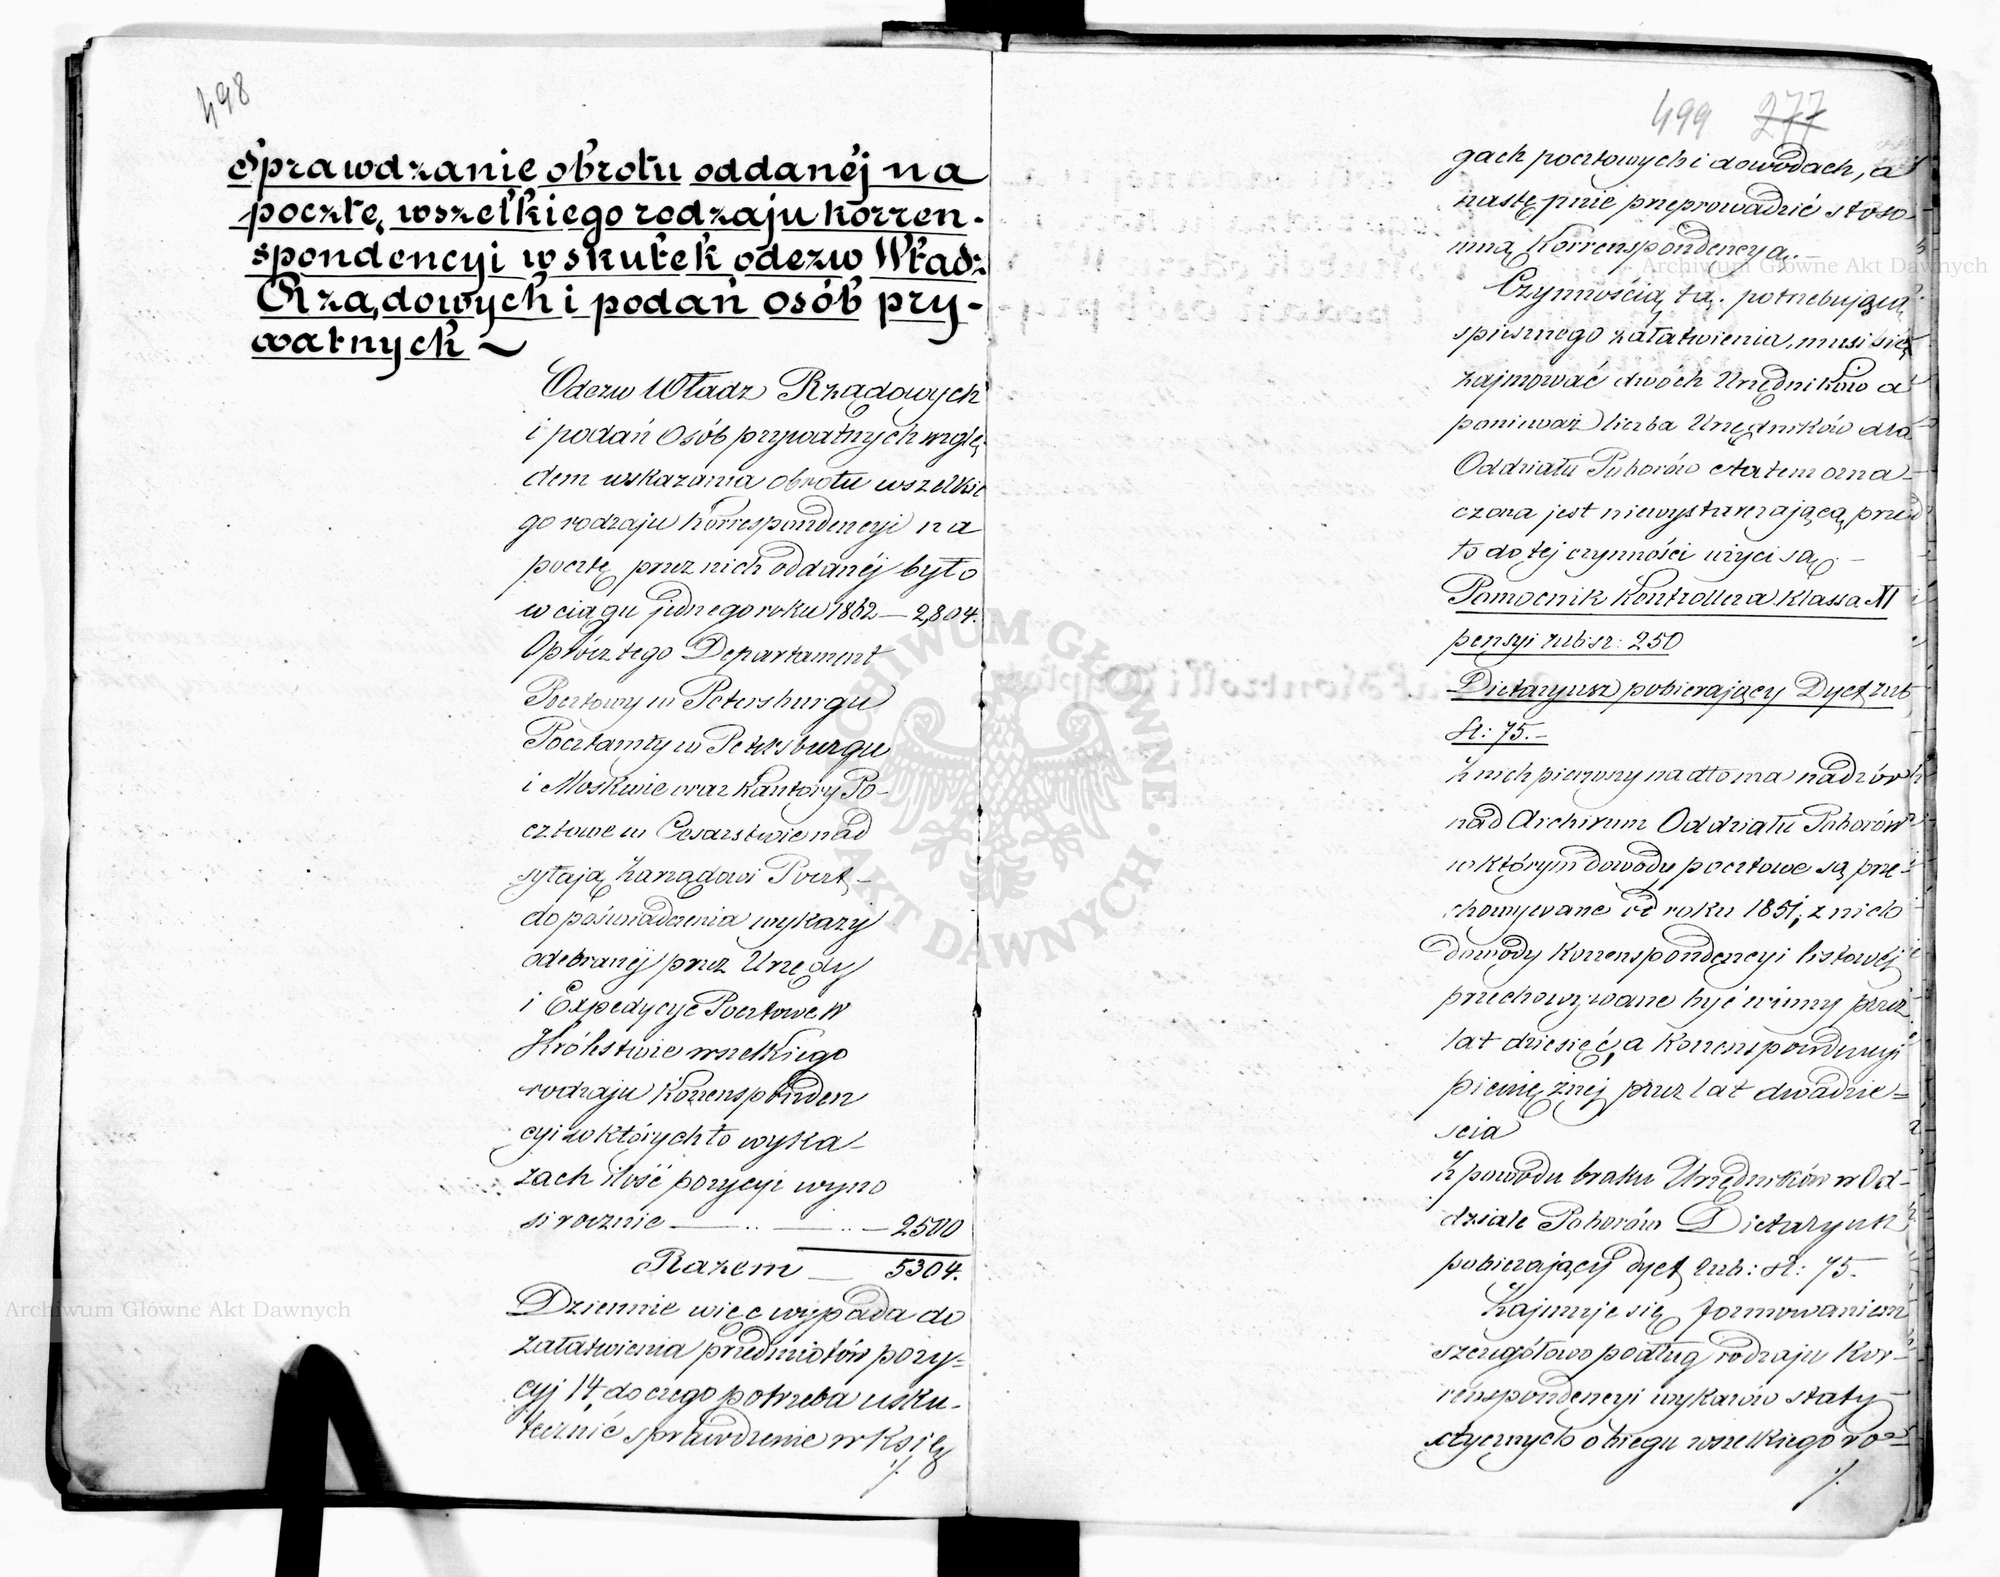 498
Sprawdzanie obrotu oddanéj na
pocztę, wszelkiego rodzaju korren-
spondencyi w skutek odezw Władz
Rządowych i podań osób pry-
watnych ~
Odezw Władz Rządowych
i podań Osób prywatnych wzglę
dem wskazania obrotu wszelkie
go rodzaju korrespondencyi na
pocztę przez nich oddanéj było
w ciągu jednego roku 1862 — 2,804.
Oprócz tego Departament
Pocztowy w Petersburgu
Pocztamty w Petersburgu
i Moskwie oraz Kantory Po-
cztowe w Cesarstwie nad
syłają Zarządowi Poczt -
do poświadczenia wykazy
odebranéj przez Urzędy
i Expedycje Pocztowe w
Królestwie wszelkiego
rodzaju Korrensponden
cyi w których to wyka-
zach ilość pozycyi wyno
si rocznie — .. — .. — 2500
Razem — 5304.
Dziennie więc wypada do
załatwienia przedmiotów pozy-
cyj 14, do czego potrzeba usku-
tecznić sprawdzenie w Księ
./.
499 277
gach pocztowych i dowodach, a
następnie przeprowadzić stoso
wną Korrenspondencyą. -
Czynnością tą, potrzebującą
spiesznego załatwienia, musi się
zajmować dwóch Urzędników a
ponieważ liczba Urzędników dla
Oddziału Poborów etatem ozna-
czona jest niewystarczającą, przed
to do téj czynności użyci są. -
Pomocnik Kontrollera klassa XI
pensyi rub: sr: 250
Dietaryusz pobierający Dyet rub
sr: 75. -
Z nich pierwszy nadto ma nadzór
nad Archiwum Oddziału Poborów
w którym dowody pocztowe są prze-
chowywane od roku 1851, z nich
dowody korrenspondencyi listowéj
przechowywane być winny przez
lat dziesięć, a korrenspondencyi
pieniężnéj przez lat dwadzie=
ścia
Z powodu braku Urzędników w Od-
dziale Poborów Dietaryusz
pobierający dyet rub: sr: 75.
Zajmuje się formowaniem
szczegółowo podług rodzaju Kor-
renspondencyi wykazów staty
stycznych obiegu wszelkiego ro=
./.
Archiwum Główne Akt Dawnych
Archiwum Główne Akt Dawnych
ARCHIWUM GŁÓWNE AKT DAWNYCH